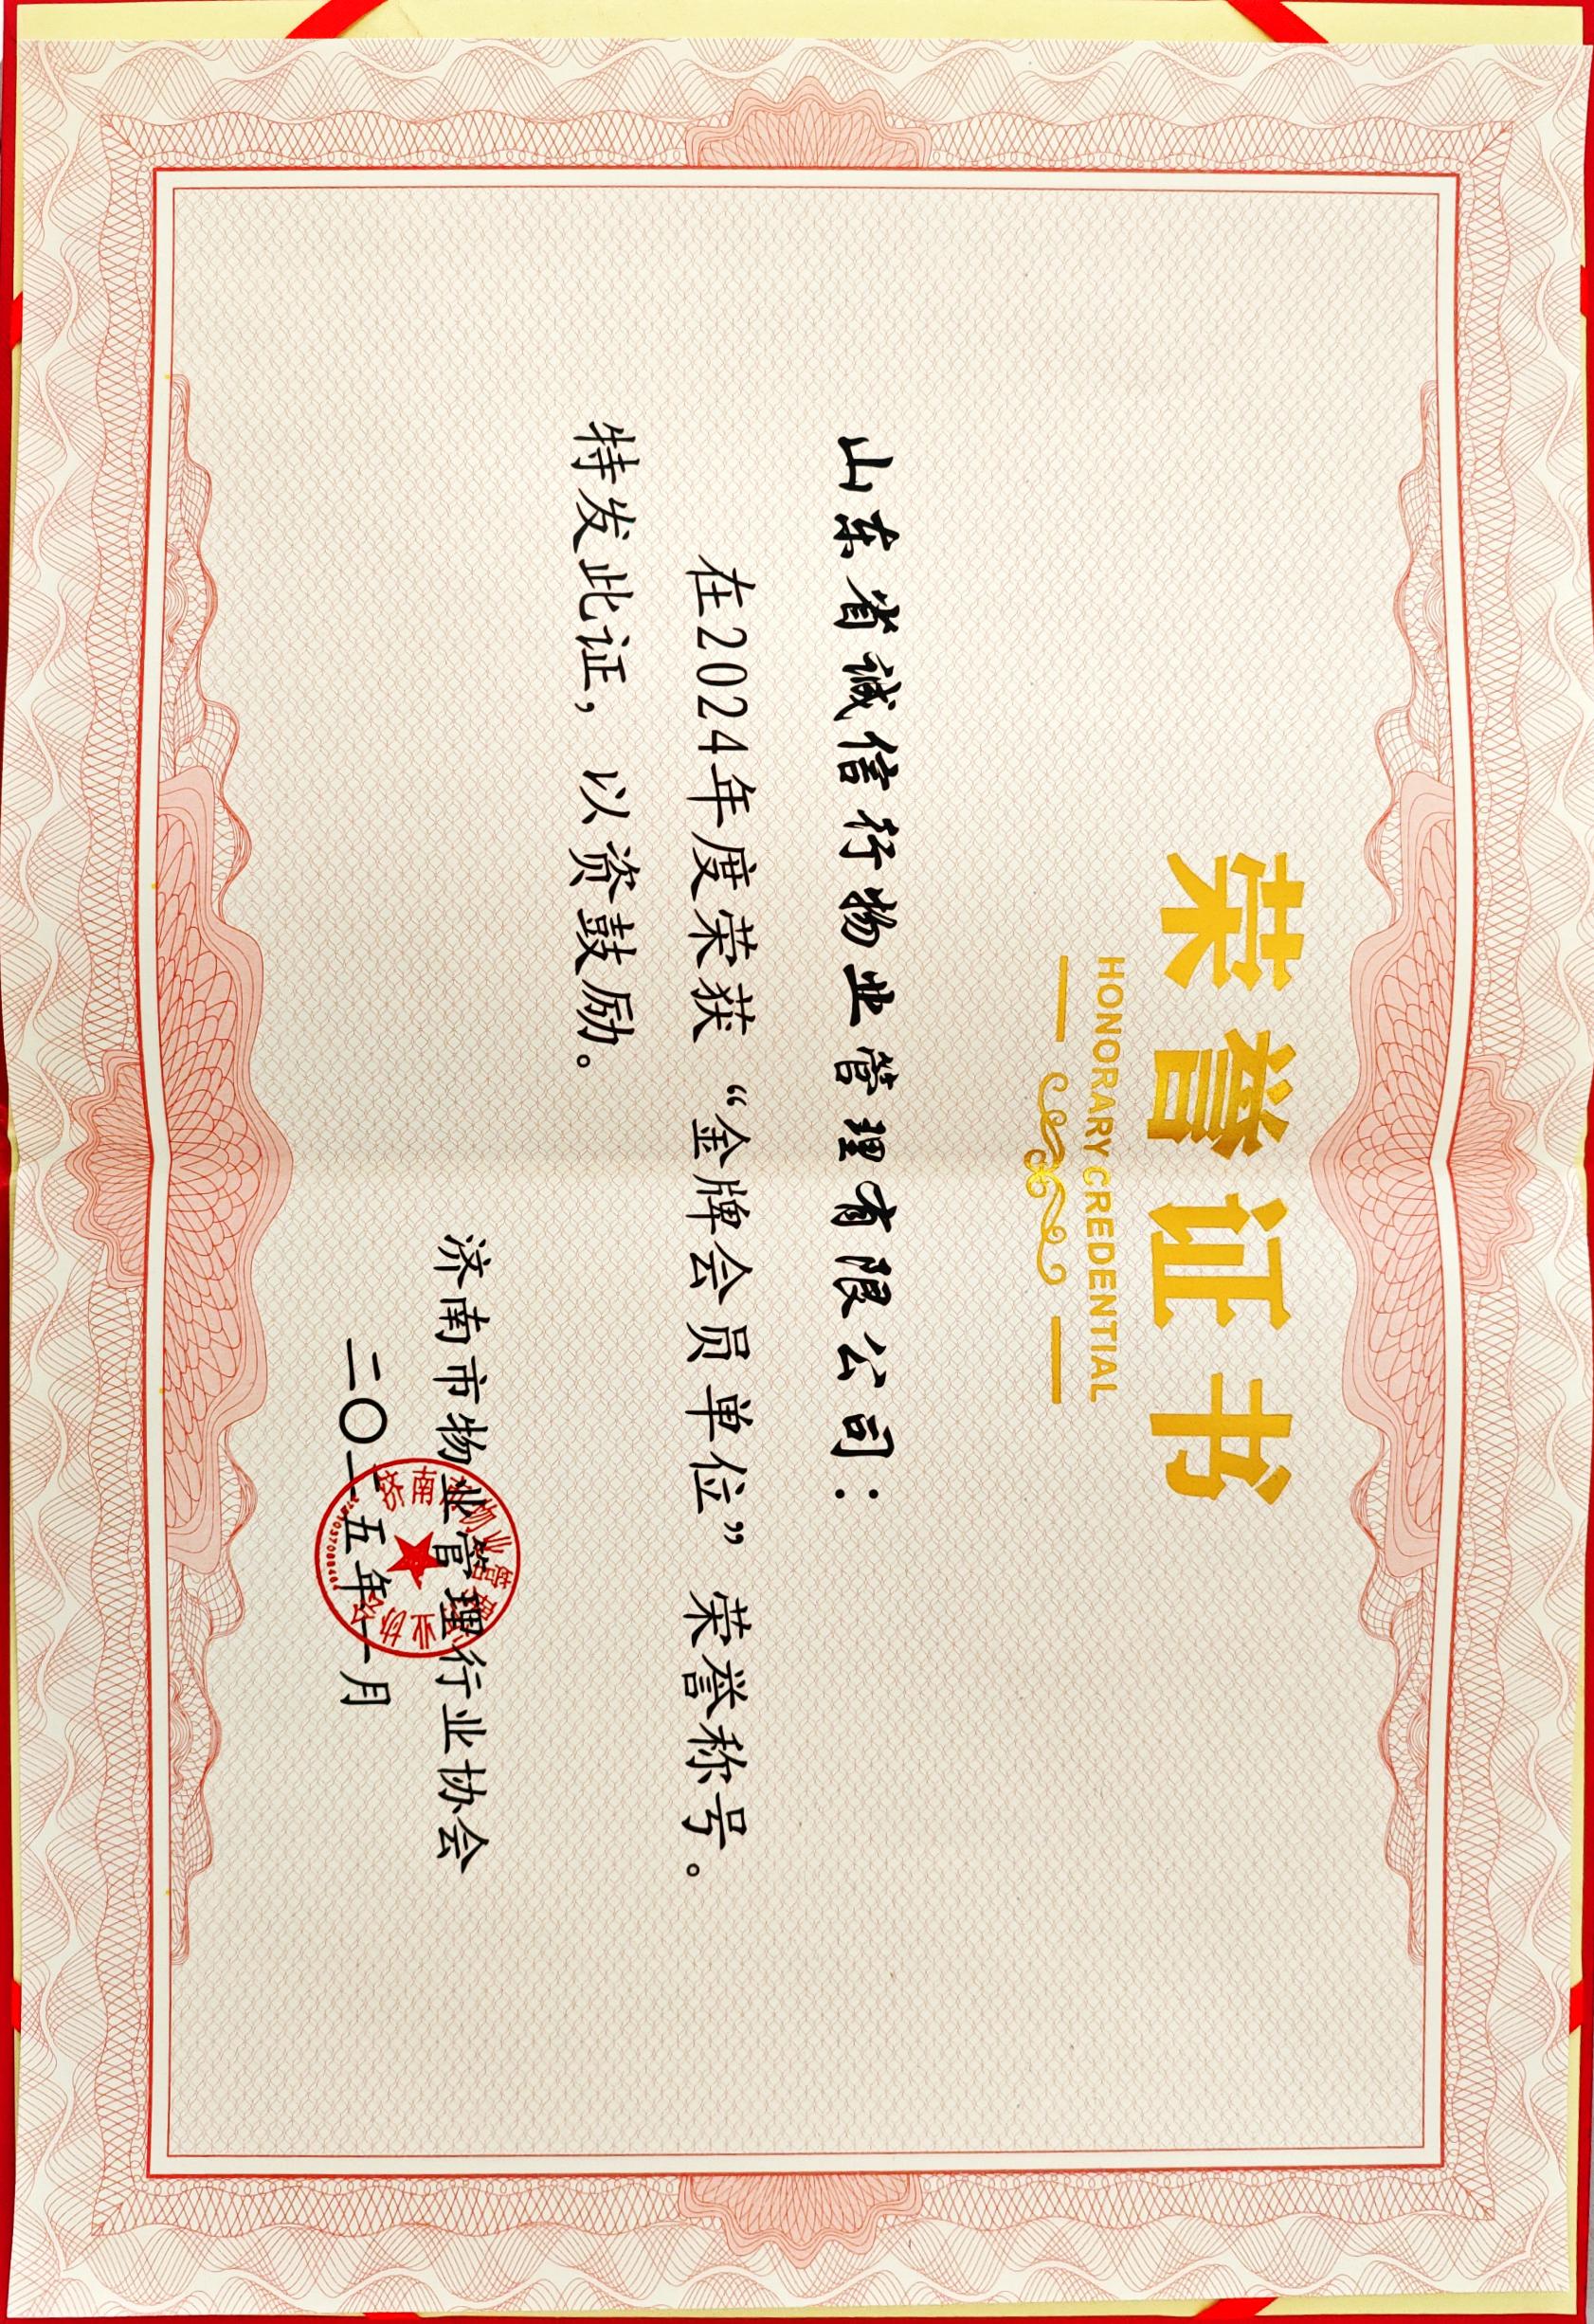 荣誉证书
HONORARY CREDENTIAL
山东省诚信行物业管理有限公司：
在2024年度荣获“金牌会员单位”荣誉称号。
特发此证，以资鼓励。
济南市物业管理行业协会
二〇二五年一月
济南市物业管理行业协会